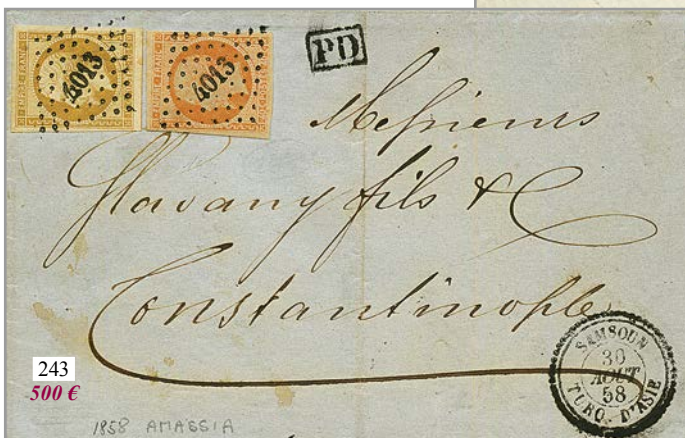 4013 4013
PD
Messieurs
Glavany fils & C
Constantinople
SAMSOUN
30
AOUT
58
TURQ. D'ASIE
243
500 €
1858 AMASSIA